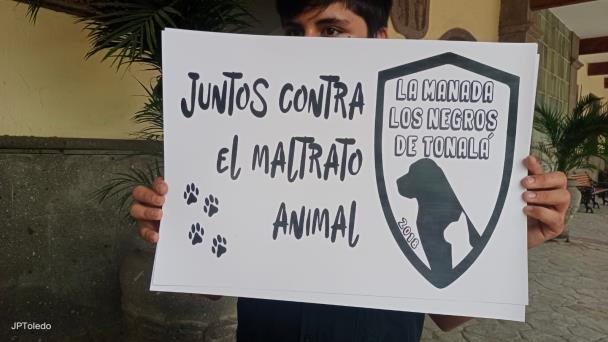 JUNTOS CONTRA
EL MALTRATO
ANIMAL
LA MANADA
LOS NEGROS
DE TONALÁ
2018
JPToledo